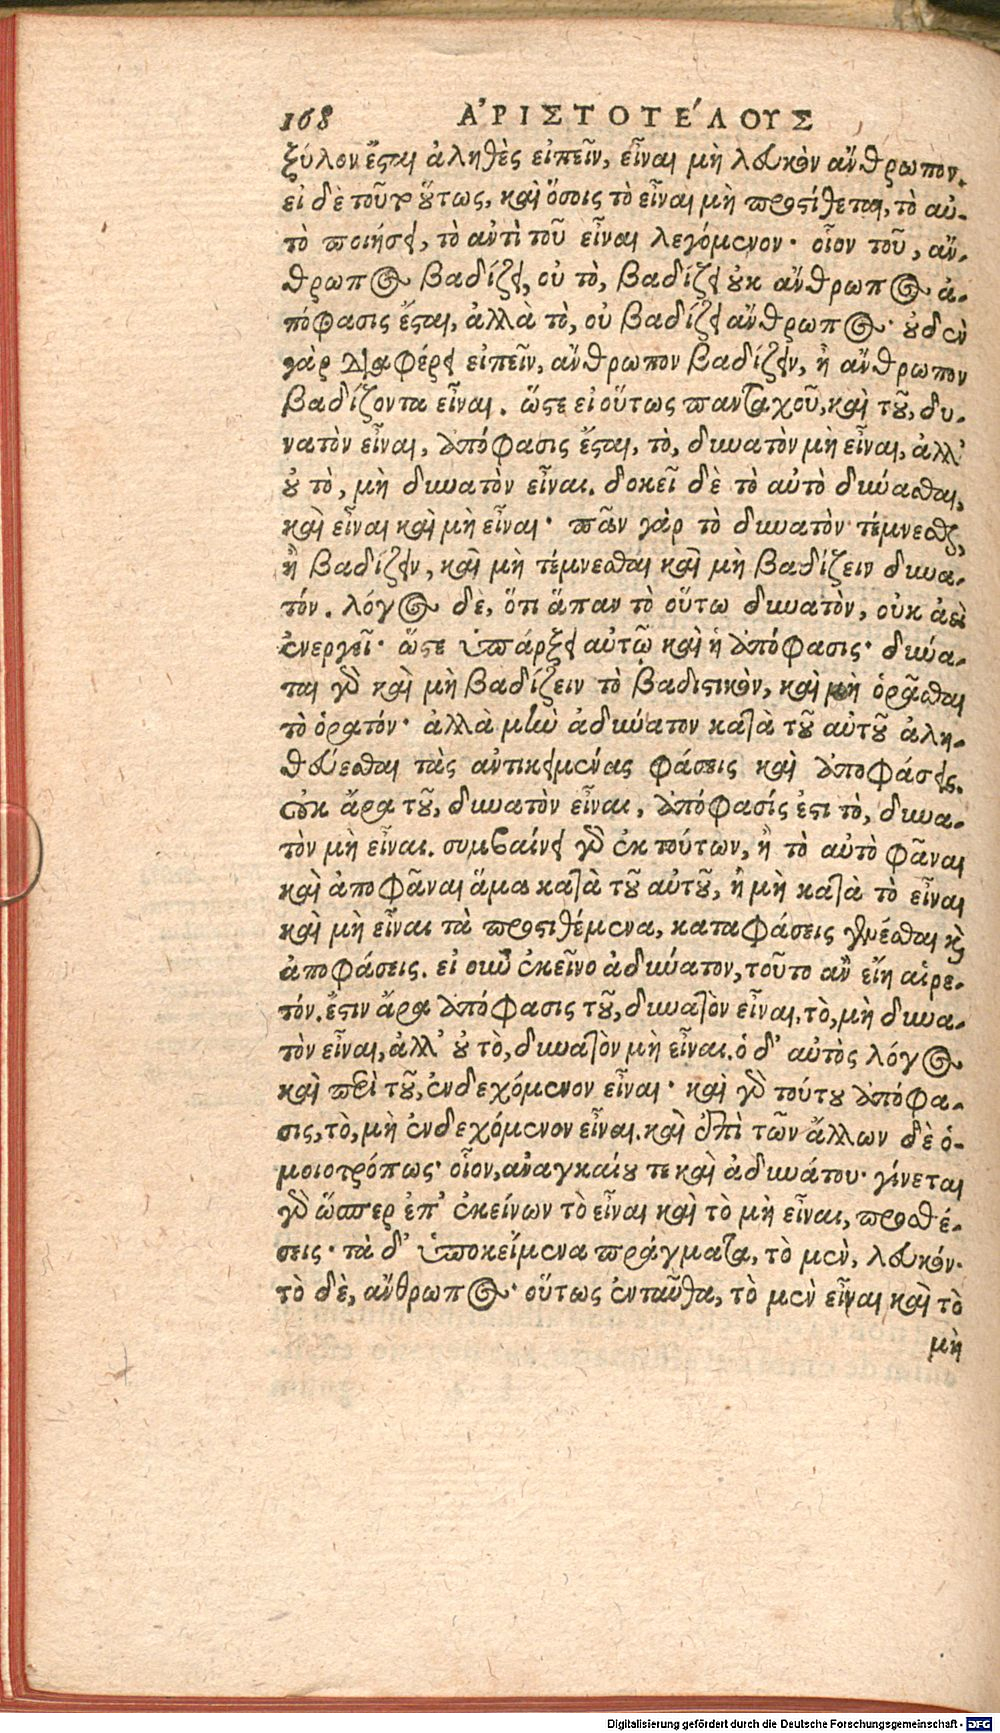 168 ἈΡΙΣΤΟΤΈΛΟΥΣ
ξύλον ἔσται ἀληθὲς εἰπεῖν, εἶναι μὴ λευκὸν ἄνθρωπον.
εἰ δὲ τοῦτο οὕτως, καὶ ὅσοις τὸ εἶναι μὴ προστίθεται, τὸ αὐ-
τὸ ποιήσει, τὸ ἀντὶ τοῦ εἶναι λεγόμενον· οἷον τοῦ, ἄν-
θρωπος βαδίζει, οὐ τὸ, βαδίζει οὐκ ἄνθρωπος ἀ-
πόφασις ἔσται, ἀλλὰ τὸ, οὐ βαδίζει ἄνθρωπος· οὐδὲν
γὰρ διαφέρει εἰπεῖν, ἄνθρωπον βαδίζειν, ἢ ἄνθρωπον
βαδίζοντα εἶναι. ὥστε εἰ οὕτως πανταχοῦ, καὶ τοῦ, δυ-
νατὸν εἶναι, ἀπόφασις ἔσται, τὸ, δυνατὸν μὴ εἶναι, ἀλλ'
οὐ τὸ, μὴ δυνατὸν εἶναι. δοκεῖ δὲ τὸ αὐτὸ δύνασθαι,
καὶ εἶναι καὶ μὴ εἶναι· πᾶν γὰρ τὸ δυνατὸν τέμνεσθαι,
ἢ βαδίζειν, καὶ μὴ τέμνεσθαι καὶ μὴ βαδίζειν δυνα-
τόν. λόγος δὲ, ὅτι ἅπαν τὸ οὕτω δυνατὸν, οὐκ ἀεὶ
ἐνεργεῖ· ὥστε ὑπάρξει αὐτῷ καὶ ἡ ἀπόφασις· δύνα-
ται γὰρ καὶ μὴ βαδίζειν τὸ βαδιστικὸν, καὶ μὴ ὁρᾶσθαι
τὸ ὁρατόν· ἀλλὰ μὴν ἀδύνατον κατὰ τοῦ αὐτοῦ ἀλη-
θεύεσθαι τὰς ἀντικειμένας φάσεις καὶ ἀποφάσεις.
οὐκ ἄρα τοῦ, δυνατὸν εἶναι, ἀπόφασίς ἐστι τὸ, δυνα-
τὸν μὴ εἶναι. συμβαίνει γὰρ ἐκ τούτων, ἢ τὸ αὐτὸ φᾶναι
καὶ ἀποφᾶναι ἅμα κατὰ τοῦ αὐτοῦ, ἢ μὴ κατὰ τὸ εἶναι
καὶ μὴ εἶναι τὰ προστιθέμενα, καταφάσεις γενέσθαι καὶ
ἀποφάσεις. εἰ οὖν ἐκεῖνο ἀδύνατον, τοῦτο ἂν εἴη αἱρε-
τόν. ἔστιν ἄρα ἀπόφασις τοῦ, δυνατὸν εἶναι, τὸ, μὴ δυνα-
τὸν εἶναι, ἀλλ' οὐ τὸ, δυνατὸν μὴ εἶναι. ὁ δ' αὐτὸς λόγος
καὶ περὶ τοῦ, ἐνδεχόμενον εἶναι· καὶ γὰρ τούτου ἀπόφα-
σις, τὸ, μὴ ἐνδεχόμενον εἶναι. καὶ ἐπὶ τῶν ἄλλων δὲ ὁ-
μοιοτρόπως· οἷον, ἀναγκαίου τε καὶ ἀδυνάτου· γίνεται
γὰρ ὥσπερ ἐπ' ἐκείνων τὸ εἶναι καὶ τὸ μὴ εἶναι, προσθέ-
σεις· τὰ δ' ὑποκείμενα πράγματα, τὸ μὲν, λευκόν·
τὸ δὲ, ἄνθρωπος· οὕτως ἐνταῦθα, τὸ μὲν εἶναι καὶ τὸ
μὴ
Digitalisierung gefördert durch die Deutsche Forschungsgemeinschaft - DFG